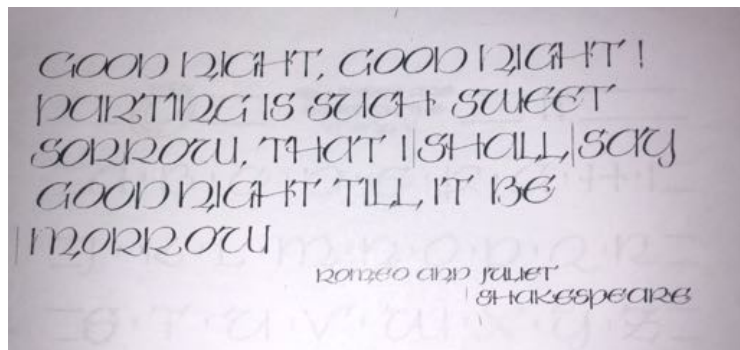 GOOD NIGHT, GOOD NIGHT!
PARTING IS SUCH SWEET
SORROW, THAT I SHALL SAY
GOOD NIGHT TILL IT BE
MORROW
ROMEO AND JULIET
SHAKESPEARE